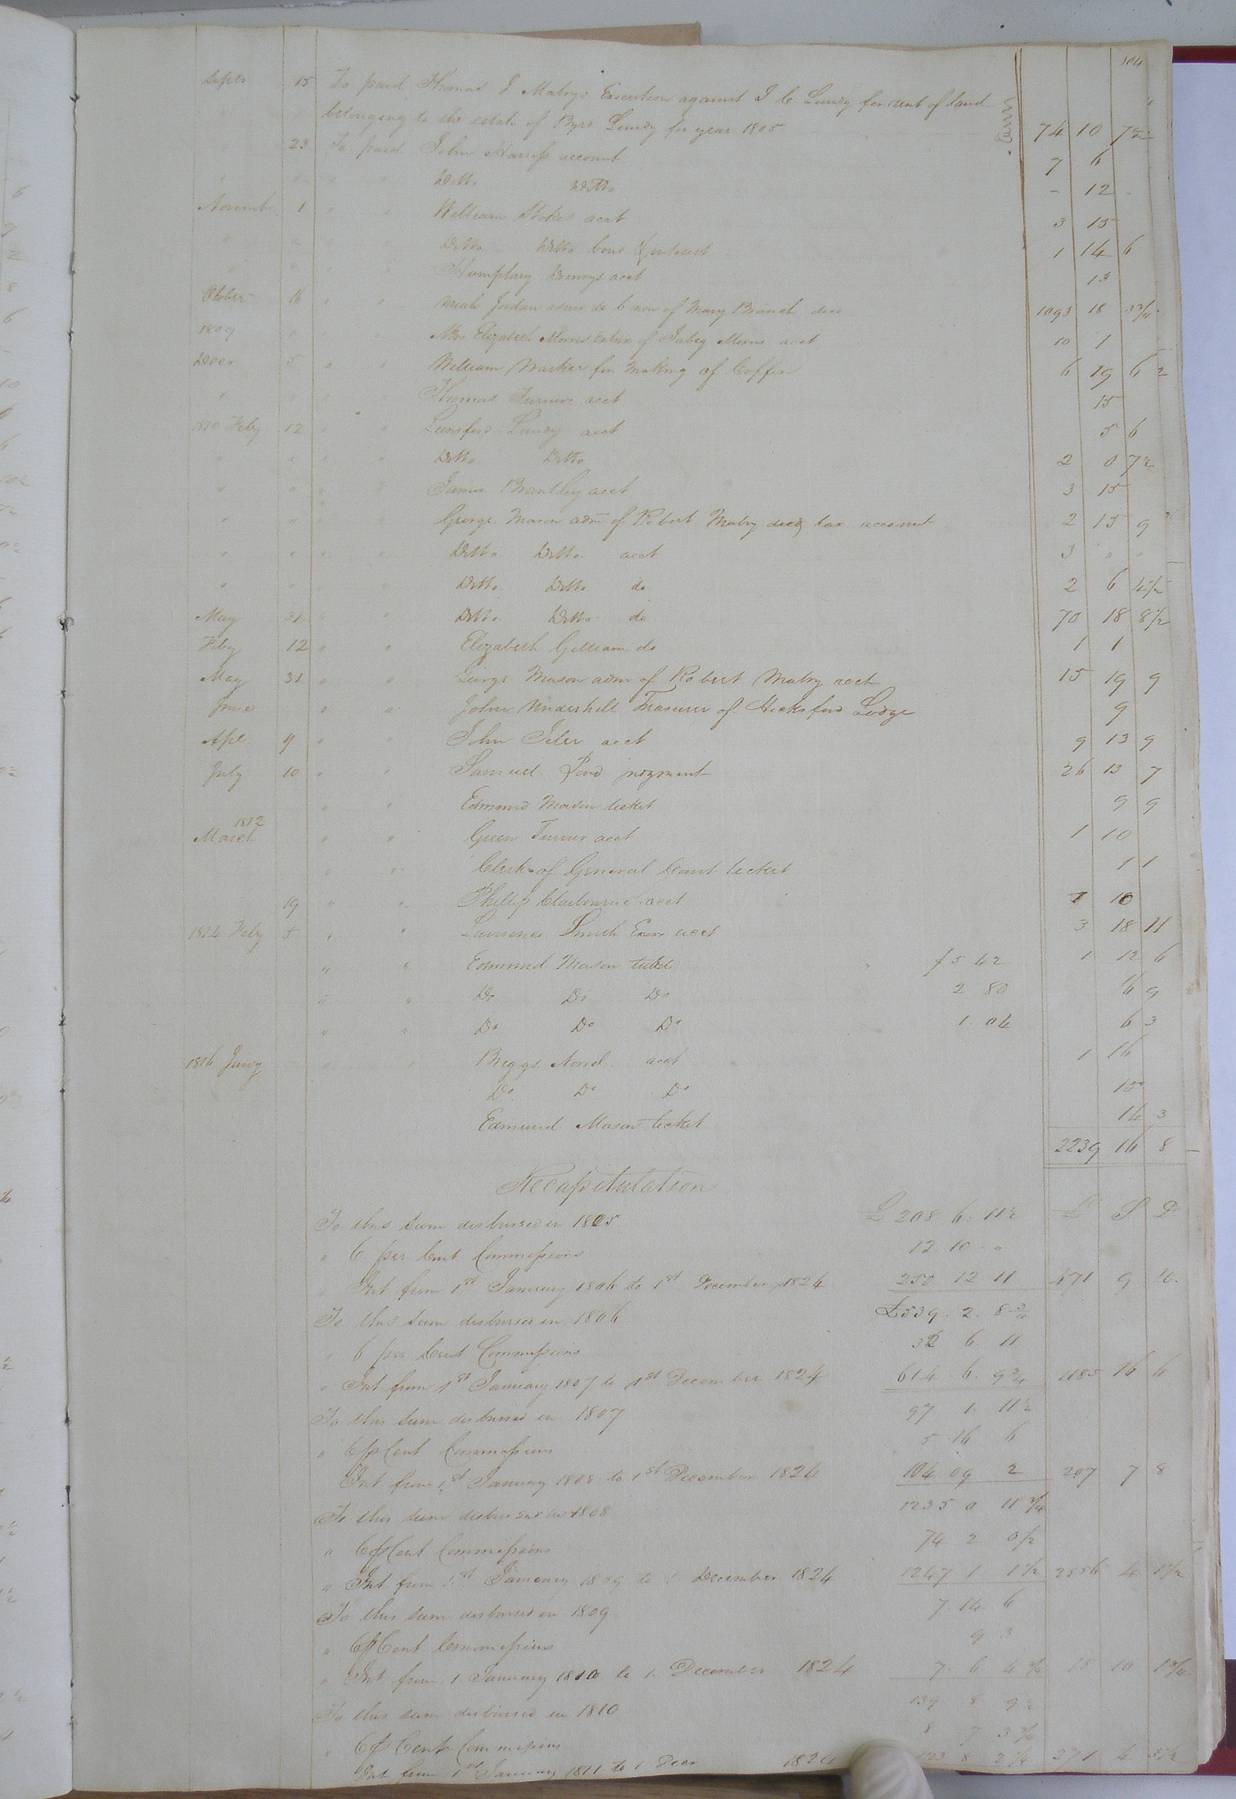 104
Septr 15 To paid Thomas J Mabrys Execution against J C Lundy for rent of land
belonging to the estate of Byrd Lundy for year 1805 74 10 7½
23 To paid John Harriss account 7 6
" " " " Ditto Ditto - 12 -
Novemb 1 " " William Stokes acct 3 15
" " " " Ditto Ditto bond & interest 1 14 6
" " " " Humphrey acct 13
October 16 " " Jordan admr de b non of Mary Branch decd 1093 18 3¾
1809 " " " Mrs Elizabeth Morris Extrx of Morris acct 10 1
Decr 5 " " William for making of Coffin 6 19 6
" " " Thomas Turner acct 15
1810 Feby 12 " " Lunsford Lundy acct 5 6
" " " " Ditto Ditto 2 0 7½
" " " " James Brantley acct 3 15
" " " " George Mason admr of Robert Mabry decd tax account 2 15 9
" " " " Ditto Ditto acct 3 " "
" " " " Ditto Ditto do 2 6 4½
May 31 " " Ditto Ditto do 70 18 8½
Feby 12 " " Elizabeth Gilliam do 1 1
May 31 " " George Mason admr of Robert Mabry acct 15 19 9
June " " John Underhill Treasurer of Hicksford Lodge 9
Apl 9 " " John acct 9 13 9
July 10 " " Samuel judgment 26 13 7
" " Edmund Mason ticket 9 9
1812
March " " Green Turner acct 1 10
" " Clerk of General Court ticket 11
19 " " Phillip Claiborne acct 1 10
1814 Feby 5 " " Lawrence Smith Exor acct 3 18 11
" " Edmund Mason ticket £5 42 1 12 6
" " Do Do Do 2 80 16 9
" " Do Do Do 1.04 6 3
1816 Jany " " Briggs acct 1 16
Do Do Do 15
Edmund Mason ticket 14 3
2239 16 8
Recapitulation
To this sum disbursed in 1805 £208 6. 11½ £ S D
" 6 per Cent Commissions 12 10 "
" Int from 1st January 1806 to 1st December 1824 250 12 11 471 9
To this sum disbursed in 1806 £539. 2. 8¾
" 6 per Cent Commissions 32 6 11
" Int from 1st January 1807 to 1st December 1824 614 6. 9¾ 1185 16 6
To this sum disbursed in 1807 97 1. 11½
" 6 p Cent Commissions 5 16 6
Int from 1st January 1808 to 1st December 1824 104 09 2 207 7 8
To this sum disbursed in 1808 1235 0 11¾
" 6 p Cent Commissions 74 2 0½
" Int from 1st January 1809 to 1 December 1824 1247 1 1½ 2556 4 1½
To this sum disbursed in 1809 7. 14 6
" 6 p Cent Commissions 9 3
" Int from 1 January 1810 to 1. December 1824 7. 6 4¾ 15 10
To this sum disbursed in 1810 139 8 9½
" 6 p Cent Commissions 8 7 3¾
Int from 1st January 1811 to 1 Decr 1824 123 8 2¼ 271 4